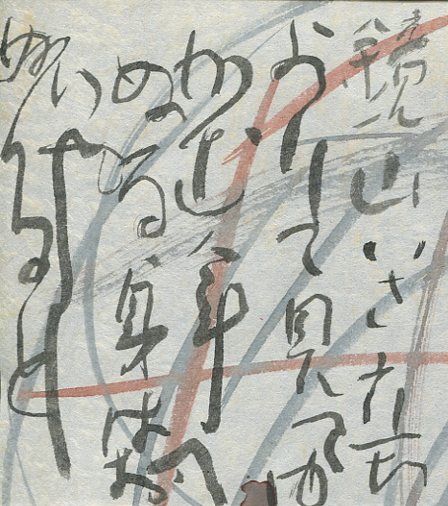 鏡山いさたち
よりて見てゆ
かむ年へ
ぬる身は
老いやしぬると